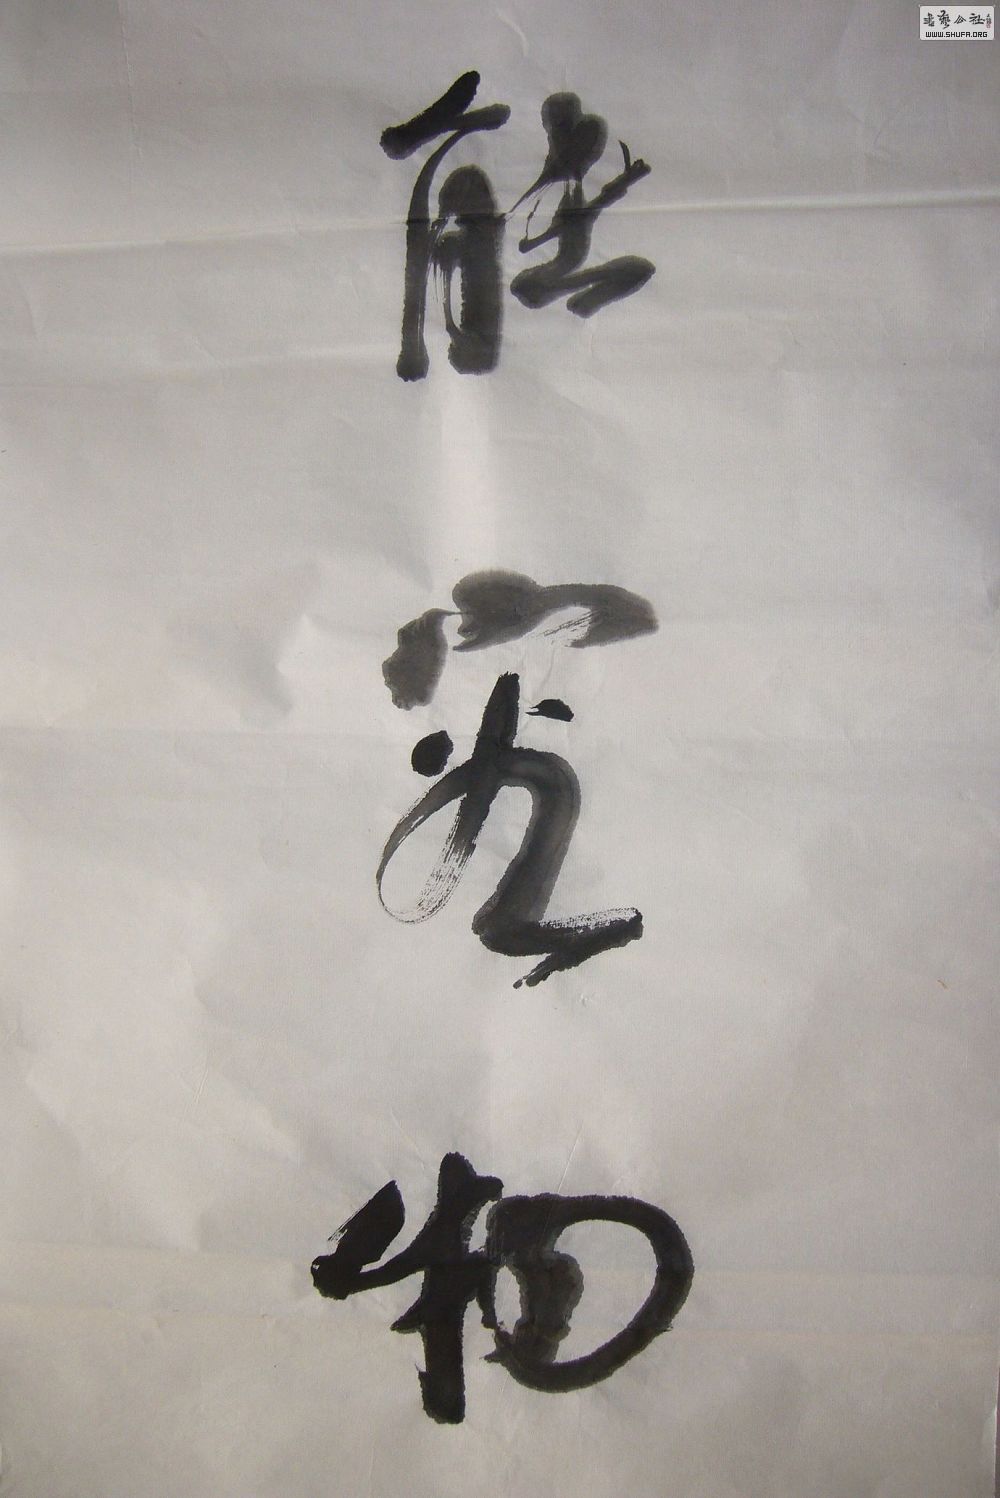 書藝公社
WWW.SHUFA.ORG
能
究
物